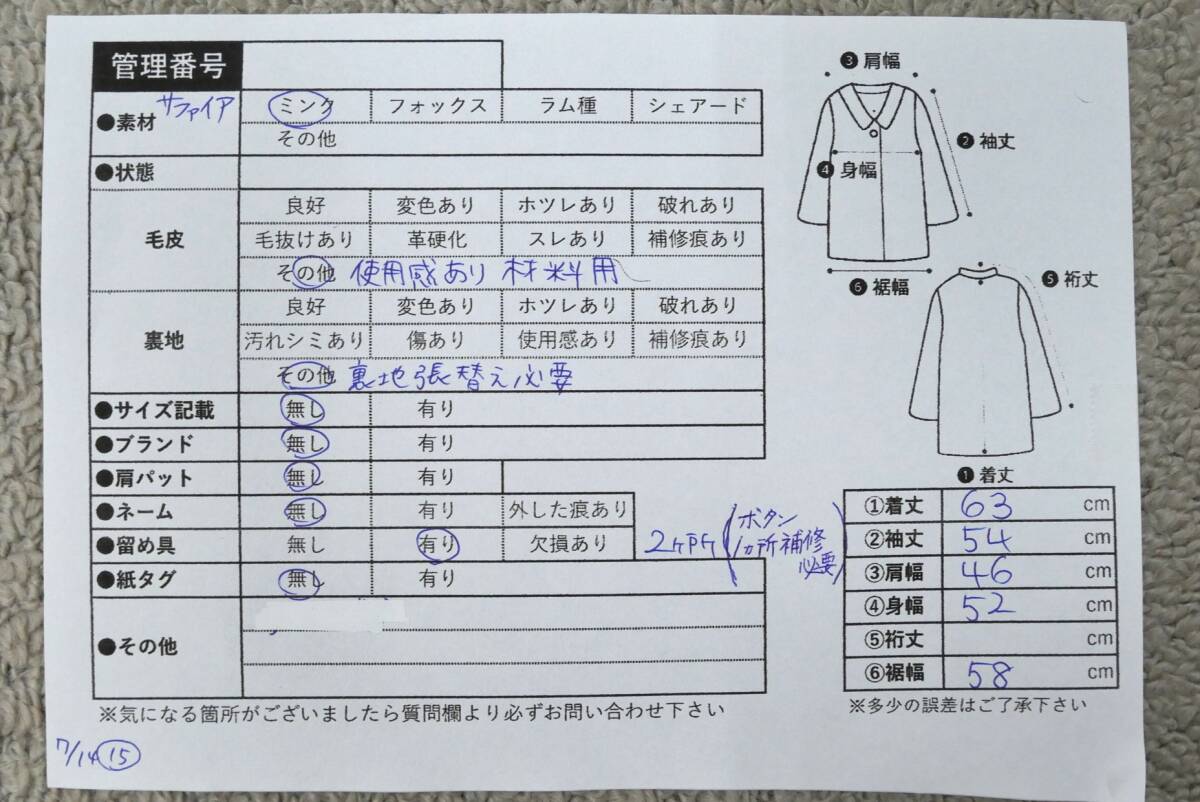 管理番号
●素材 サファイア ミンク フォックス ラム種 シェアード
その他
●状態
毛皮 良好 変色あり ホツレあり 破れあり
毛抜けあり 革硬化 スレあり 補修痕あり
その他 使用感あり 材料用
裏地 良好 変色あり ホツレあり 破れあり
汚れシミあり 傷あり 使用感あり 補修痕あり
その他 裏地張替え必要
●サイズ記載 無し 有り
●ブランド 無し 有り
●肩パット 無し 有り
●ネーム 無し 有り 外した痕あり
●留め具 無し 有り 欠損あり 2ヶ所(ボタン
1ヵ所補修
必要)
●紙タグ 無し 有り
●その他
※気になる箇所がございましたら質問欄より必ずお問い合わせ下さい
7/14 ⑮
❸肩幅
❷袖丈
❹身幅
❻裾幅
❺裄丈
❶着丈
①着丈 63 cm
②袖丈 54 cm
③肩幅 46 cm
④身幅 52 cm
⑤裄丈 cm
⑥裾幅 58 cm
※多少の誤差はご了承下さい